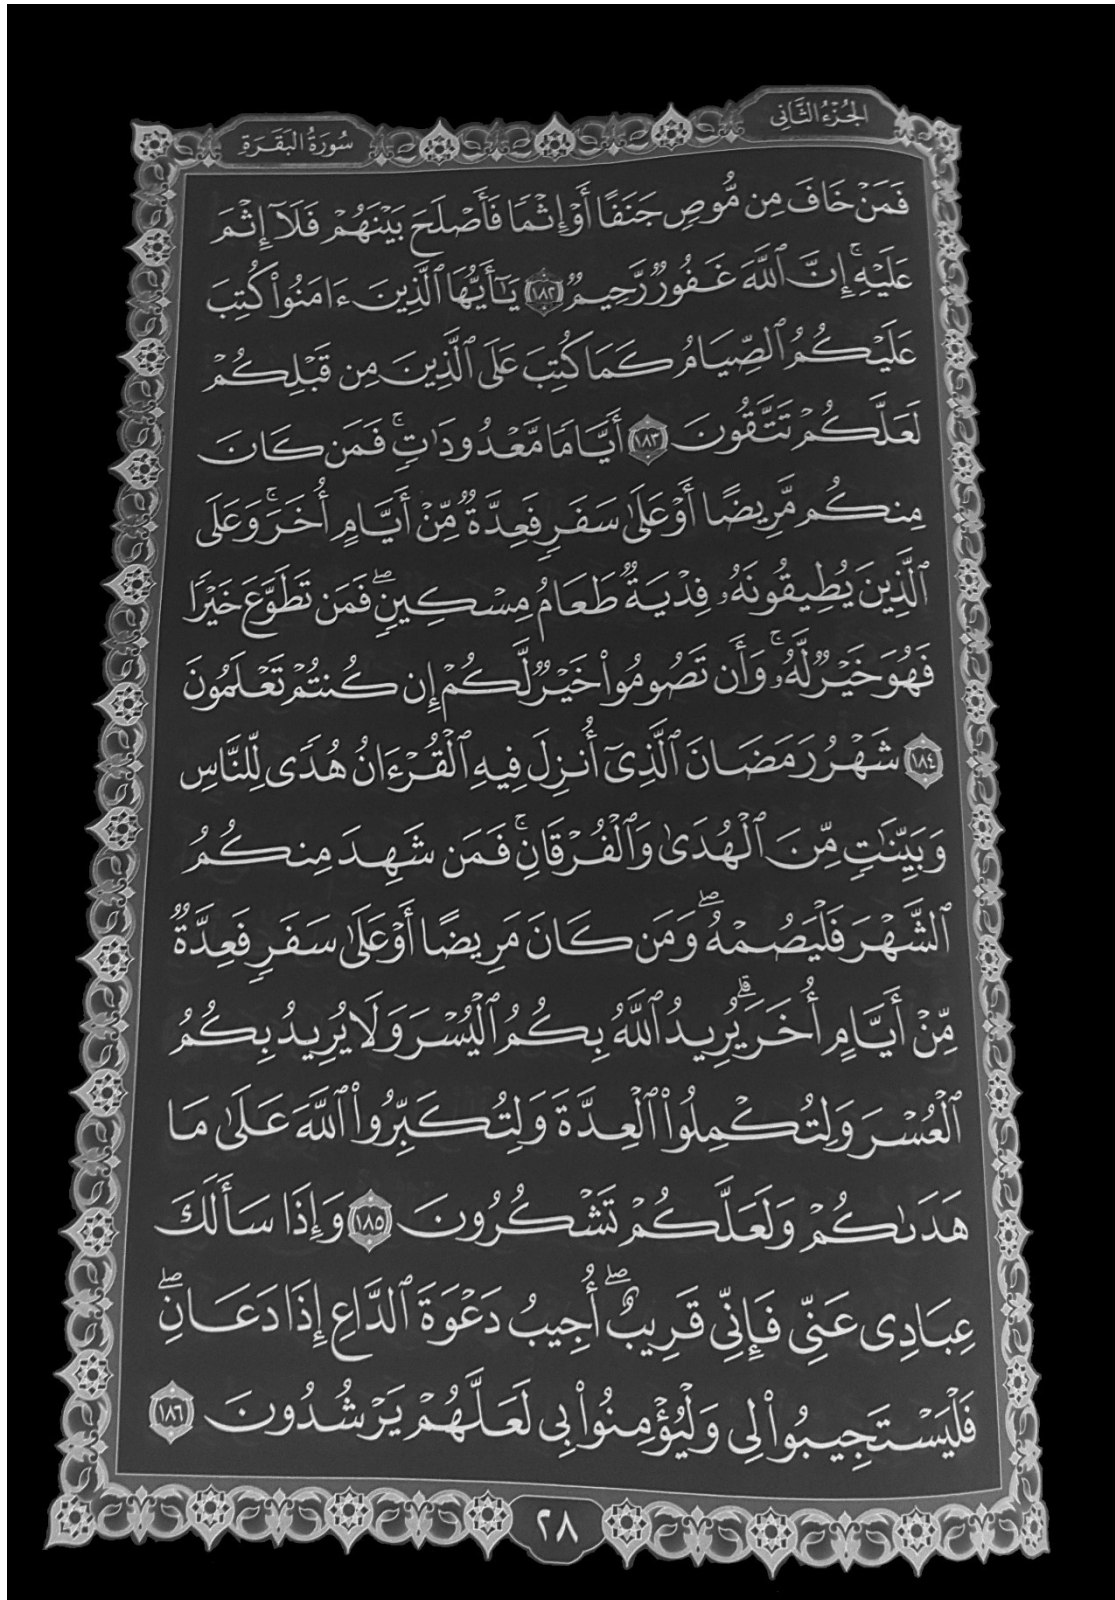 الجُزْءُ الثَّانِي
سُورَةُ البَقَرَةِ
فَمَنْ خَافَ مِن مُّوصٍ جَنَفًا أَوْ إِثْمًا فَأَصْلَحَ بَيْنَهُمْ فَلَآ إِثْمَ
عَلَيْهِۚ إِنَّ ٱللَّهَ غَفُورٌ رَّحِيمٌ ١٨٢ يَـٰٓأَيُّهَا ٱلَّذِينَ ءَامَنُوا۟ كُتِبَ
عَلَيْكُمُ ٱلصِّيَامُ كَمَا كُتِبَ عَلَى ٱلَّذِينَ مِن قَبْلِكُمْ
لَعَلَّكُمْ تَتَّقُونَ ١٨٣ أَيَّامًا مَّعْدُودَٰتٍۚ فَمَن كَانَ
مِنكُم مَّرِيضًا أَوْ عَلَىٰ سَفَرٍ فَعِدَّةٌ مِّنْ أَيَّامٍ أُخَرَۚ وَعَلَى
ٱلَّذِينَ يُطِيقُونَهُۥ فِدْيَةٌ طَعَامُ مِسْكِينٍۖ فَمَن تَطَوَّعَ خَيْرًا
فَهُوَ خَيْرٌ لَّهُۥۚ وَأَن تَصُومُوا۟ خَيْرٌ لَّكُمْ إِن كُنتُمْ تَعْلَمُونَ
١٨٤ شَهْرُ رَمَضَانَ ٱلَّذِىٓ أُنزِلَ فِيهِ ٱلْقُرْءَانُ هُدًى لِّلنَّاسِ
وَبَيِّنَـٰتٍ مِّنَ ٱلْهُدَىٰ وَٱلْفُرْقَانِۚ فَمَن شَهِدَ مِنكُمُ
ٱلشَّهْرَ فَلْيَصُمْهُۖ وَمَن كَانَ مَرِيضًا أَوْ عَلَىٰ سَفَرٍ فَعِدَّةٌ
مِّنْ أَيَّامٍ أُخَرَۗ يُرِيدُ ٱللَّهُ بِكُمُ ٱلْيُسْرَ وَلَا يُرِيدُ بِكُمُ
ٱلْعُسْرَ وَلِتُكْمِلُوا۟ ٱلْعِدَّةَ وَلِتُكَبِّرُوا۟ ٱللَّهَ عَلَىٰ مَا
هَدَىٰكُمْ وَلَعَلَّكُمْ تَشْكُرُونَ ١٨٥ وَإِذَا سَأَلَكَ
عِبَادِى عَنِّى فَإِنِّى قَرِيبٌۖ أُجِيبُ دَعْوَةَ ٱلدَّاعِ إِذَا دَعَانِۖ
فَلْيَسْتَجِيبُوا۟ لِى وَلْيُؤْمِنُوا۟ بِى لَعَلَّهُمْ يَرْشُدُونَ ١٨٦
٢٨